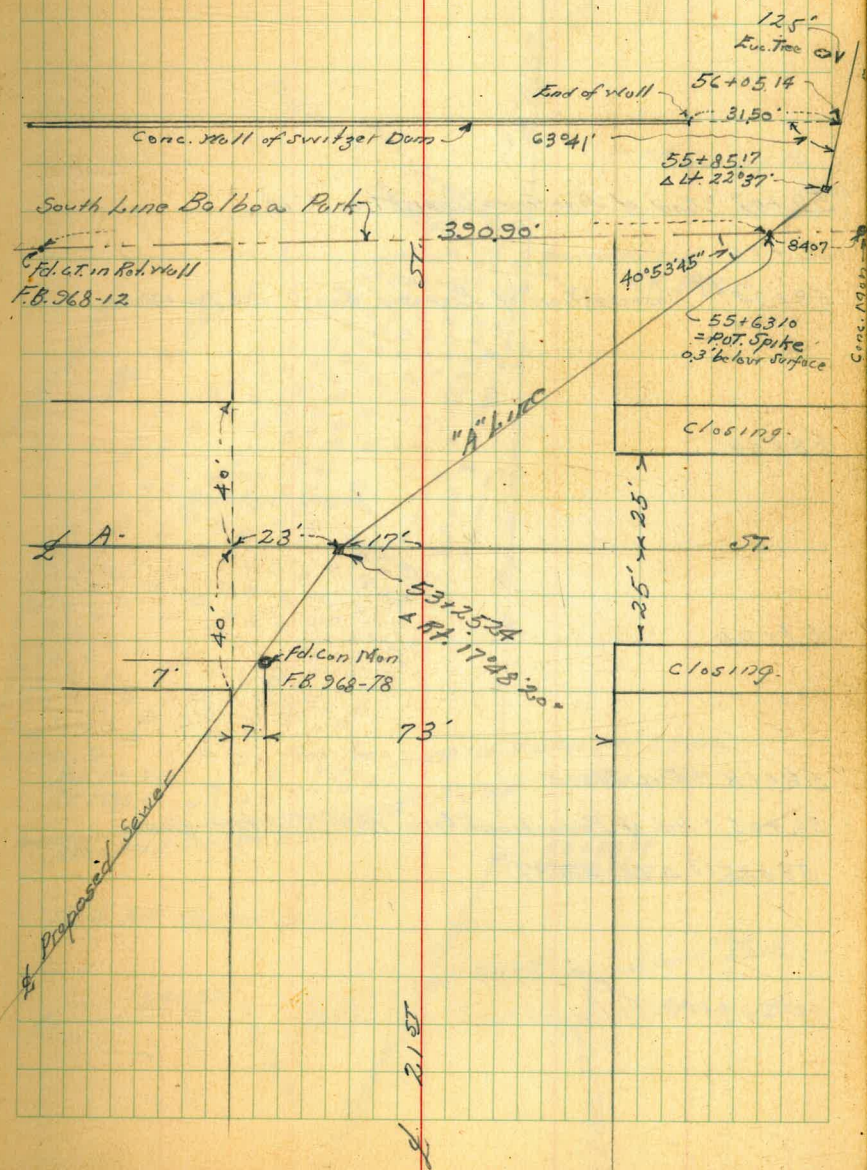 125'
Euc. Tree
56+05.14
End of Wall
31.50'
Conc. Wall of Switzer Dam
63°41'
55+85.17
Δ Lt. 22°37'
South Line Balboa Park
390.90'
84.07
ST.
40°53'45"
Fd. L.T. in Ret. Wall
F.B. 968-12
55+63.10
= P.O.T. Spike
0.3' below surface
Conc. Mon
"A" Line
Closing.
40'
25'
℄ A-
23'
17'
ST.
53+25.24
Δ Rt. 17°48'20"
25'
40'
Fd. Con Mon
F.B. 968-78
7'
Closing.
7
73'
℄ Proposed Sewer
℄ 21 ST